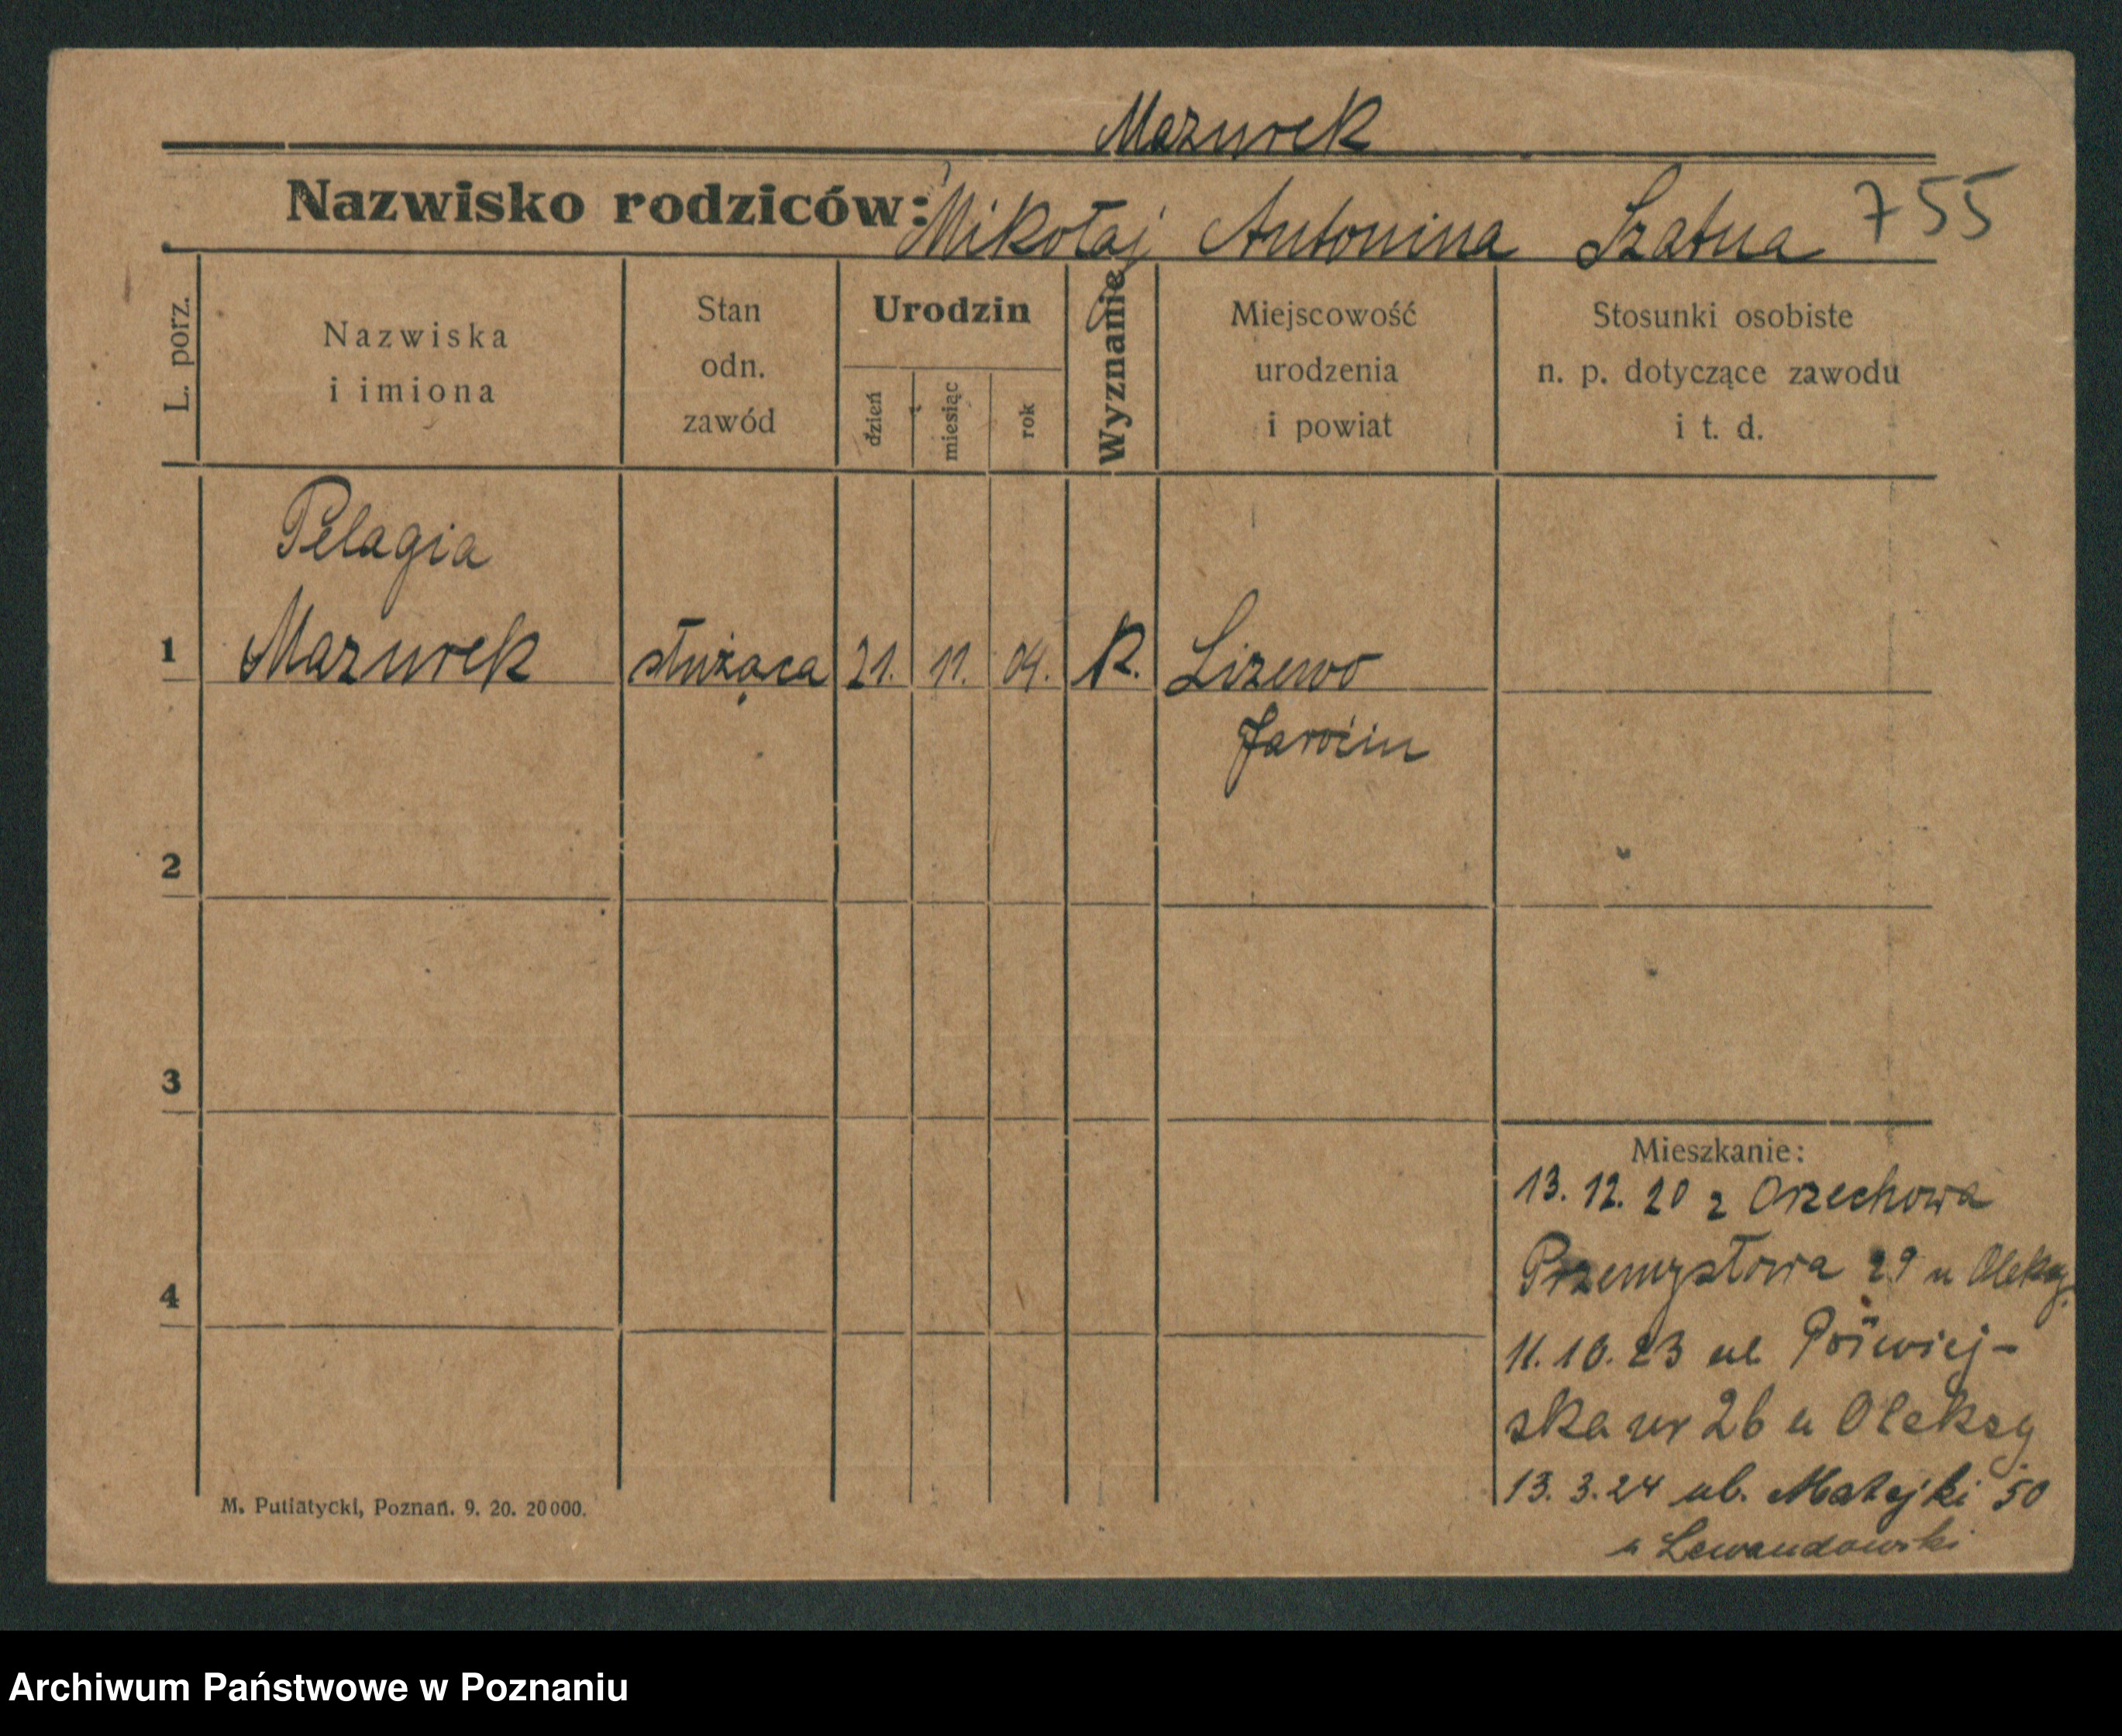 Mazurek
Nazwisko rodziców: Mikołaj Antonina Szatna 755
L. porz.
Nazwiska
i imiona
Stan
odn.
zawód
Urodzin
dzień
miesiąc
rok
Wyznanie
Miejscowość
urodzenia
i powiat
Stosunki osobiste
n. p. dotyczące zawodu
i t. d.
Pelagia
1 Mazurek służąca 21. 11. 04. R. Lizewo
Jarocin
2
3
4
Mieszkanie:
13. 12. 20 z Orzechowa
Przemysłowa 29 u Oleksy
11. 10. 23 ul Półwiej-
ska nr 26 u Oleksy
13. 3. 24 ul. Matejki 50
u Lewandowski
M. Putiatycki, Poznań. 9. 20. 20000.
Archiwum Państwowe w Poznaniu